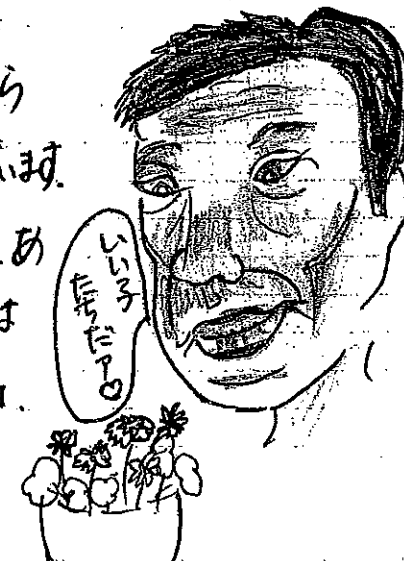 ら
います.
あ
は
いい子
たちだァ♡